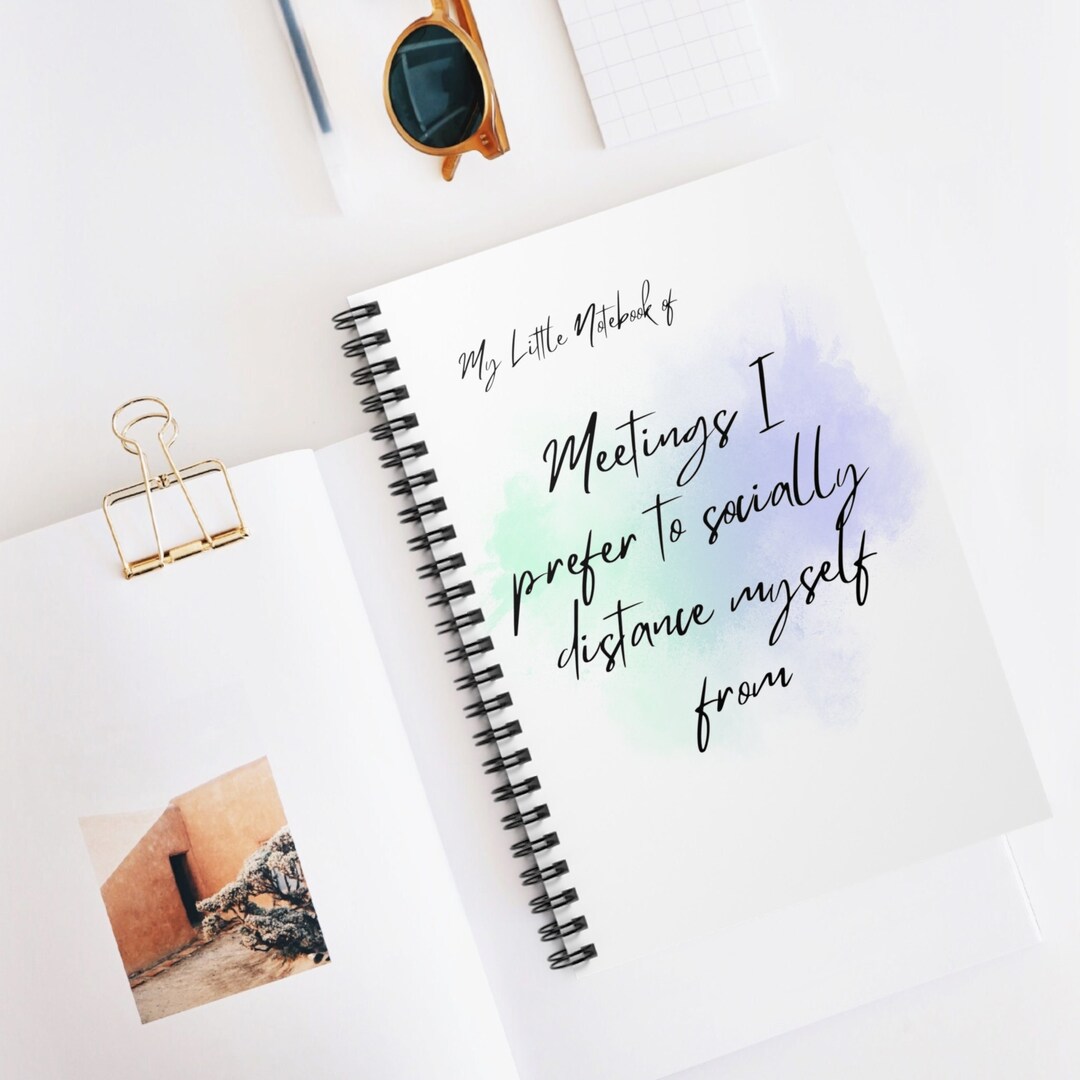 My Little Notebook of
Meetings I
prefer to socially
distance myself
from